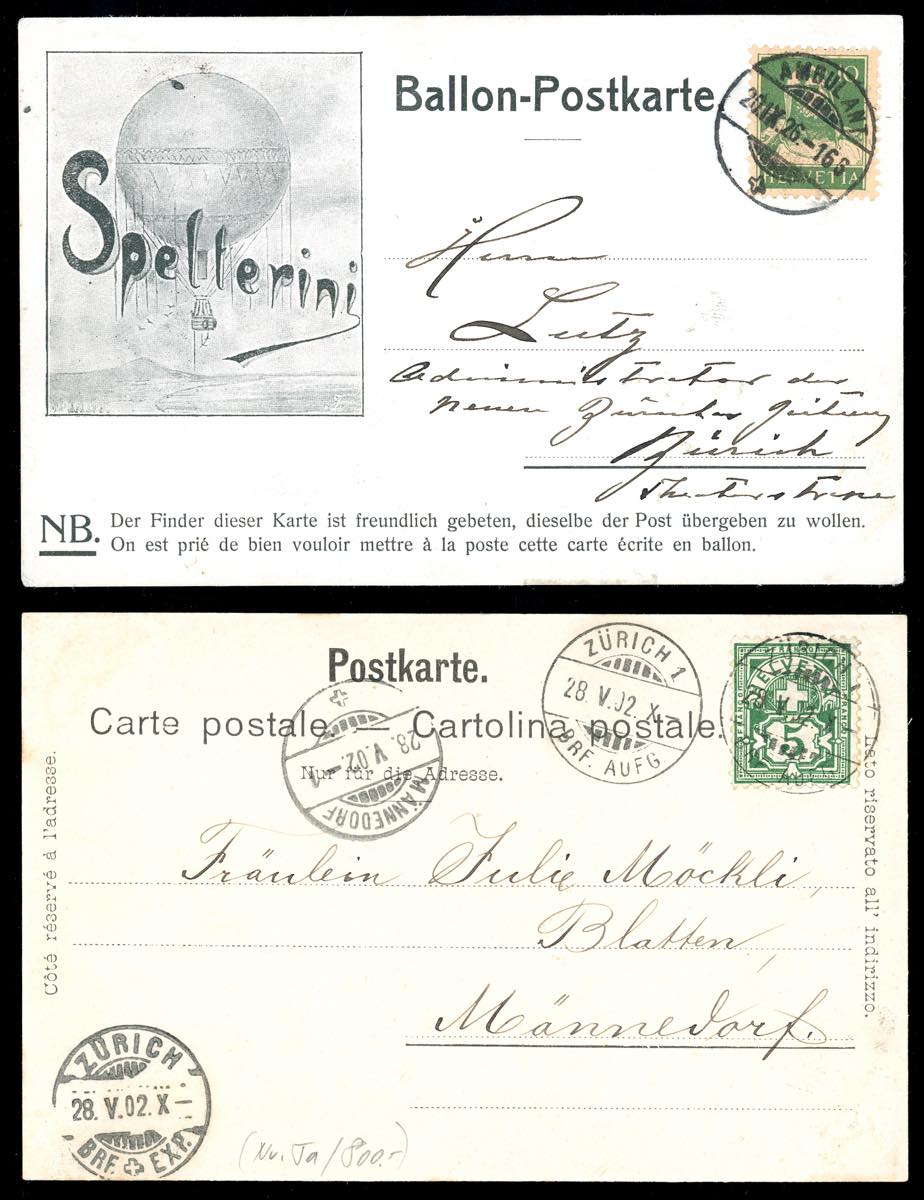 Spelterini
Ballon-Postkarte.
10
HELVETIA
AMBULANT
20.IX.26.-16
Herrn
Lutz
Administrator der
Neuen Zürcher Zeitung
Zürich
Theaterstrasse
NB. Der Finder dieser Karte ist freundlich gebeten, dieselbe der Post übergeben zu wollen.
On est prié de bien vouloir mettre à la poste cette carte écrite en ballon.
Postkarte.
Carte postale. — Cartolina postale.
Nur für die Adresse.
Côté réservé à l'adresse.
Lato riservato all' indirizzo.
MÄNNEDORF
28.V.02.-1
ZÜRICH 1
28.V.02.X
BRF. AUFG.
HELVETIA
FRANCO
5
Fräulein Julie Möckli,
Blatten,
Männedorf.
ZÜRICH
28.V.02.X-
BRF. EXP.